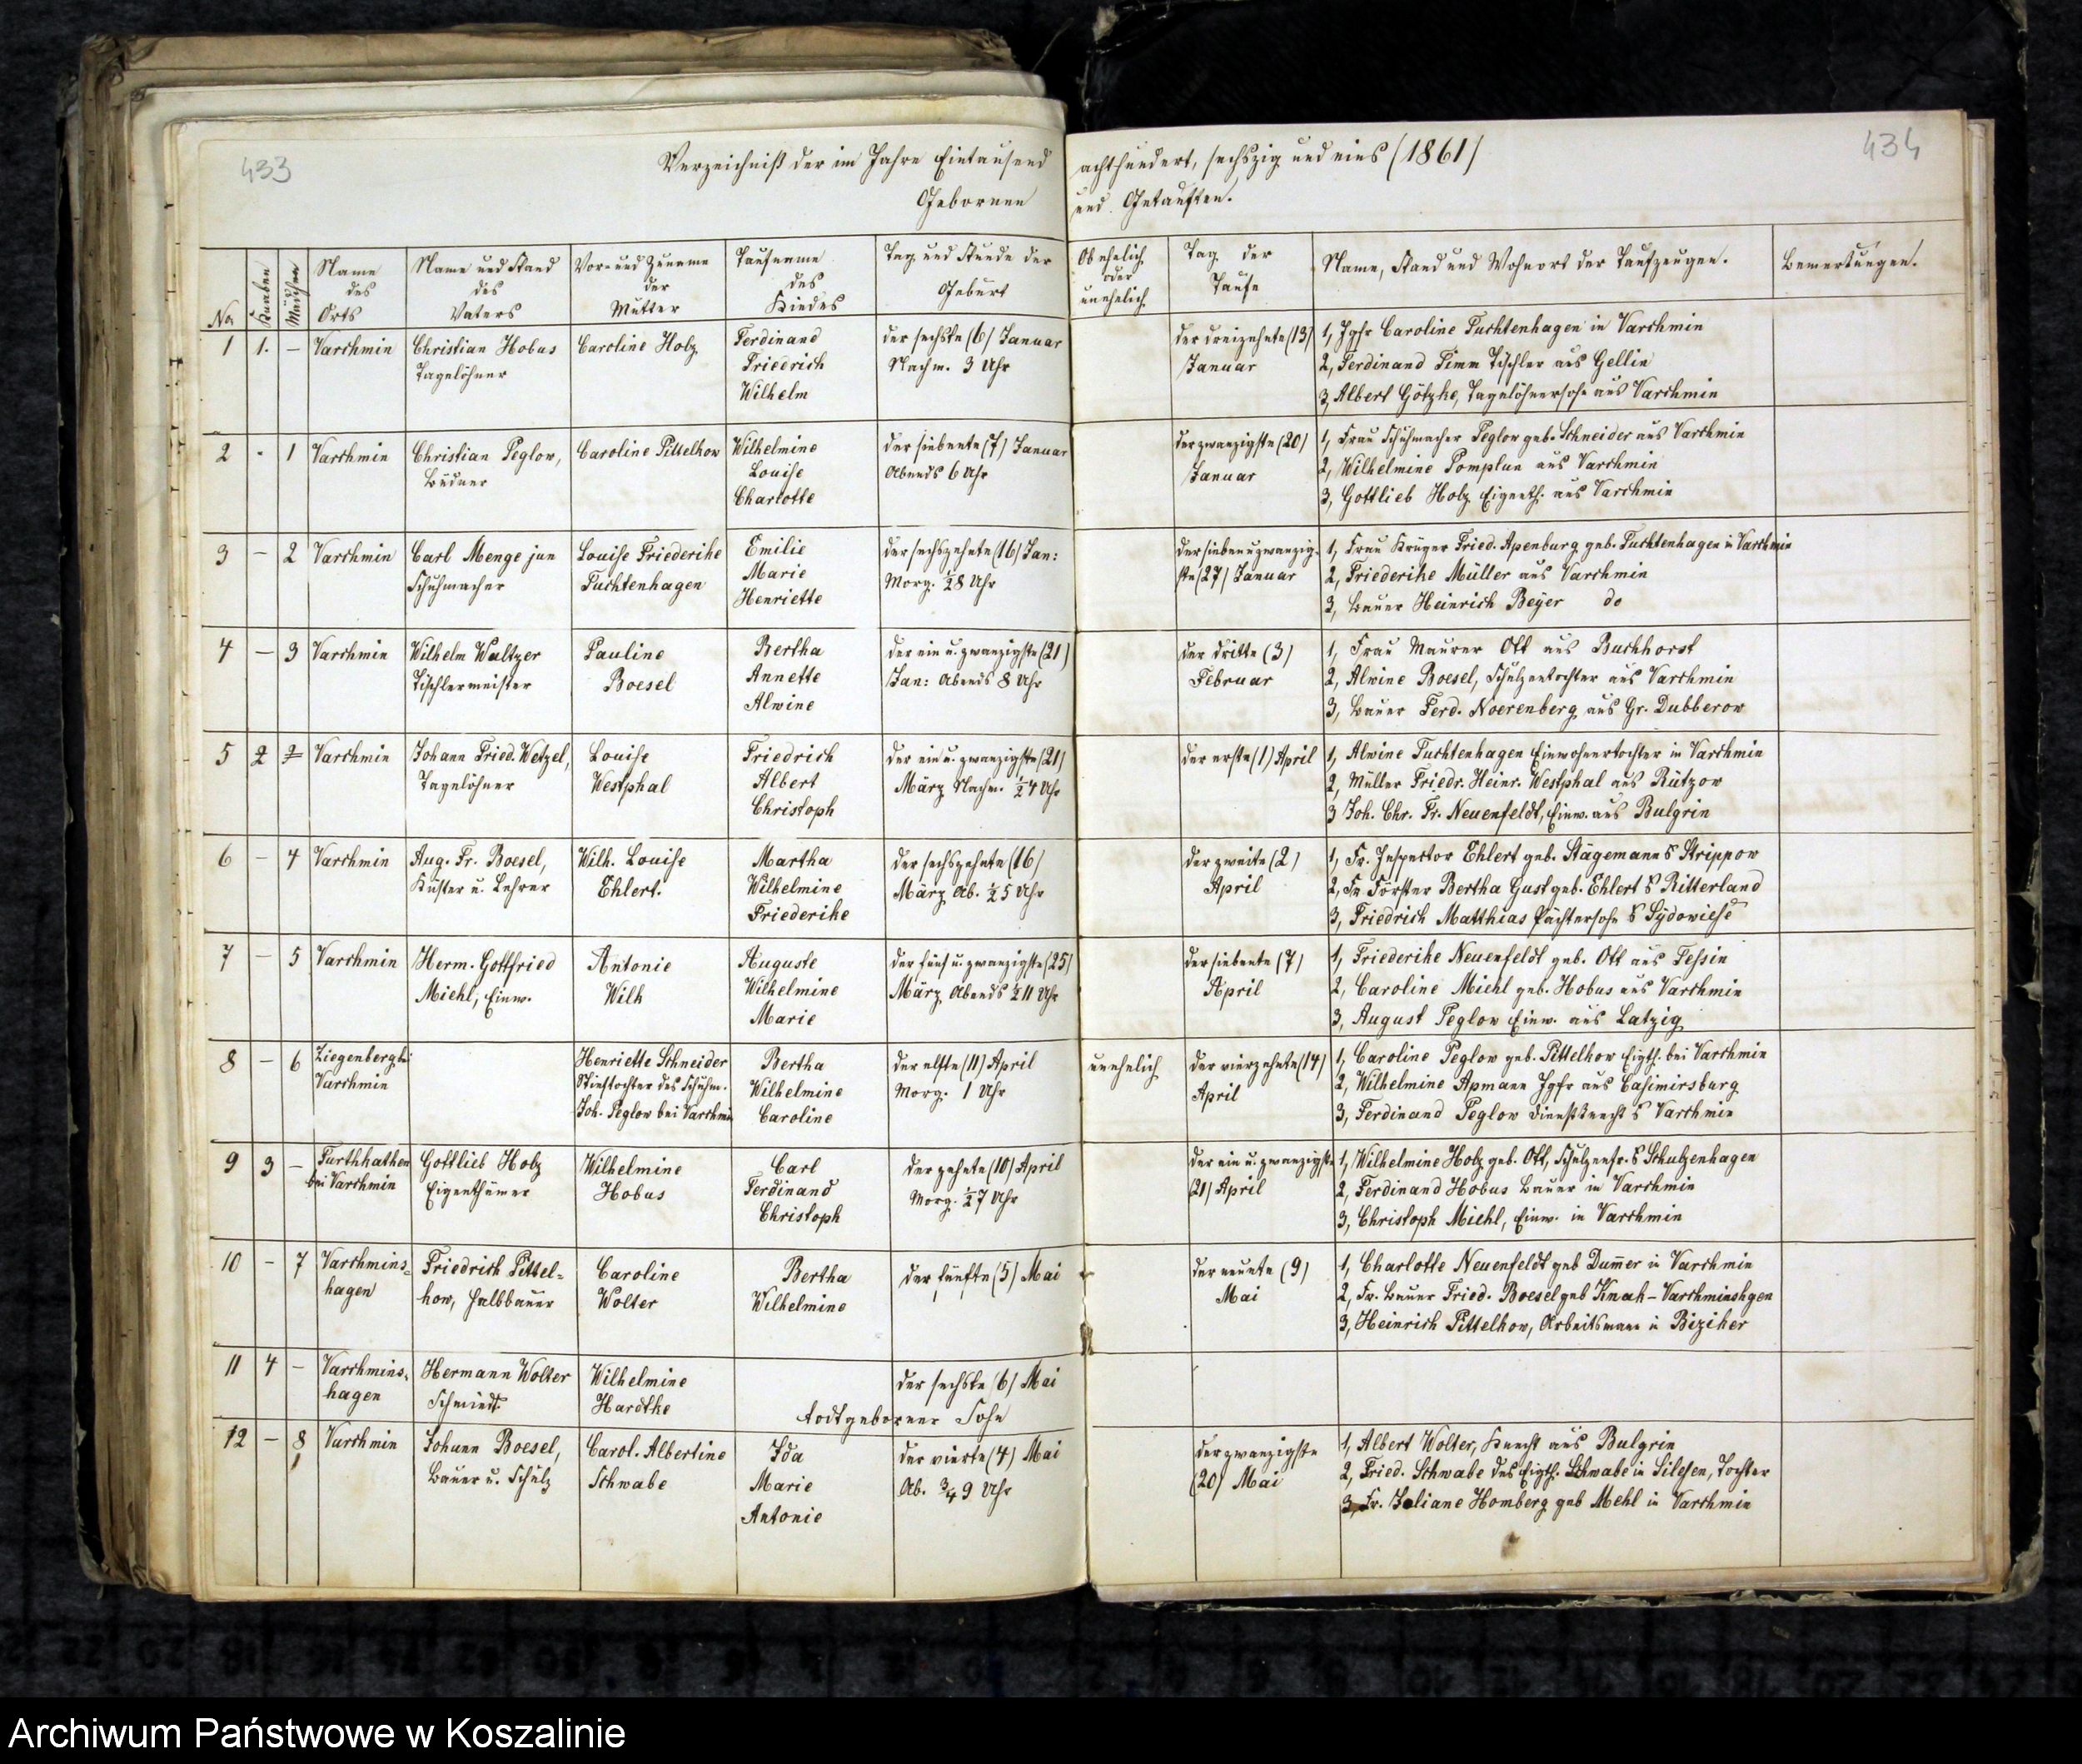 433
434
Verzeichniß der im Jahre Eintausend achthundert, sechszig und eins (1861)
Gebornen und Getauften.
No.
Knaben
Mädchen
Name des Orts
Name und Stand des Vaters
Vor- und Zuname der Mutter
Taufname des Kindes
Tag und Stunde der Geburt
Ob ehelich oder unehelich
Tag der Taufe
Name, Stand und Wohnort der Taufzeugen.
Bemerkungen.
1 1. – Varchmin Christian Hobus Caroline Holz Ferdinand der sechste (6) Januar der dreizehnte (13) 1, Jgfr Caroline Fuchtenhagen in Varchmin
Tagelöhner Friedrich Nachm. 3 Uhr Januar 2, Ferdinand Timm Tischler aus Gellin
Wilhelm 3, Albert Götzke, Tagelöhnersohn aus Varchmin
2 · 1 Varchmin Christian Peglow, Caroline Pittelkow Wilhelmine der siebente (7) Januar der zwanzigste (20) 1, Frau Schuhmacher Peglow geb. Schneider aus Varchmin
Büdner Louise Abends 6 Uhr Januar 2, Wilhelmine Pomplun aus Varchmin
Charlotte 3, Gottlieb Holz Eigenth. aus Varchmin
3 – 2 Varchmin Carl Menge jun Louise Friederike Emilie der sechszehnte (16) Jan: der siebenuzwanzig- 1, Frau Krüger Fried. Apenburg geb. Fuchtenhagen in Varchmin
Schuhmacher Fuchtenhagen Marie Morg. ½8 Uhr ste (27) Januar 2, Friederike Müller aus Varchmin
Henriette 3, Bauer Heinrich Beÿer do
4 – 3 Varchmin Wilhelm Waltzer Pauline Bertha der ein u. zwanzigste (21) der dritte (3) 1, Frau Maurer Ott aus Buchhorst
Tischlermeister Boesel Annette Jan: Abends 8 Uhr Februar 2, Alwine Boesel, Schulzentochter aus Varchmin
Alwine 3, Bauer Ferd. Noerenberg aus Gr. Dubberow
5 2 – Varchmin Johann Fried. Wetzel, Louise Friedrich der ein u. zwanzigste (21) der erste (1) April 1, Alwine Fuchtenhagen Einwohnertochter in Varchmin
Tagelöhner Westphal Albert März Nachm. ½4 Uhr 2, Müller Friedr. Heinr. Westphal aus Rützow
Christoph 3 Joh. Chr. Fr. Neuenfeldt, Einw. aus Bulgrin
6 – 4 Varchmin Aug. Fr. Boesel, Wilh. Louise Martha der sechszehnte (16) der zweite (2) 1, Fr. Inspector Ehlert geb. Stägemann Strippow
Küster u. Lehrer Ehlert. Wilhelmine März Ab. ½5 Uhr April 2, Fr Förster Bertha Gust geb. Ehlert Ritterland
Friederike 3, Friedrich Matthias Pächtersohn Sÿdowiese
7 – 5 Varchmin Herm. Gottfried Antonie Auguste der fünf u. zwanzigste (25) der siebente (7) 1, Friederike Neuenfeldt geb. Ott aus Tessin
Miehl, Einw. Wilk Wilhelmine März Abends ½11 Uhr April 2, Caroline Miehl geb. Hobus aus Varchmin
Marie 3, August Peglow Einw. aus Latzig
8 – 6 Ziegenberg bei Henriette Schneider Bertha der elfte (11) April unehelich der vierzehnte (14) 1, Caroline Peglow geb. Pittelkow Eigth. bei Varchmin
Varchmin Stieftochter des Schuhm. Wilhelmine Morg. 1 Uhr April 2, Wilhelmine Apmann Jgfr aus Casimirsburg
Joh. Peglow bei Varchmin Caroline 3, Ferdinand Peglow Dienstknecht Varchmin
9 3 – Furthkathen Gottlieb Holz Wilhelmine Carl der zehnte (10) April der ein u. zwanzigste 1, Wilhelmine Holz geb. Ott, Schulzenfr. Schulzenhagen
bei Varchmin Eigenthümer Hobus Ferdinand Morg. ½7 Uhr (21) April 2, Ferdinand Hobus Bauer in Varchmin
Christoph 3, Christoph Miehl, Einw. in Varchmin
10 – 7 Varchmins- Friedrich Pittel- Caroline Bertha der fünfte (5) Mai der neunte (9) 1, Charlotte Neuenfeldt geb Dum̄er in Varchmin
hagen kow, Halbbauer Wolter Wilhelmine Mai 2, Fr. Bauer Fried. Boesel geb Kmak – Varchminshgen
3, Heinrich Pittelkow, Arbeitsmann in Biziker
11 4 – Varchmins- Hermann Wolter Wilhelmine der sechste (6) Mai
hagen Schmiedt Hardtke todtgeborner Sohn
12 – 8 Varchmin Johann Boesel, Carol. Albertine Ida der vierte (4) Mai der zwanzigste 1, Albert Wolter, Knecht aus Bulgrin
Bauer u. Schulz Schwabe Marie Ab. ¾9 Uhr (20) Mai 2, Fried. Schwabe des Eigth. Schwabe in Silesen, Tochter
Antonie 3, Fr. Juliane Homberg geb Mehl in Varchmin
Archiwum Państwowe w Koszalinie